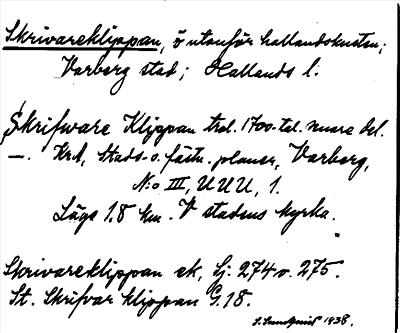 Skrivareklippan, ö utanför hallandskusten;
Varberg stad; Hallands l.
Skrifware Klippan trol. 1700-tal. senare del.
—. KrA, Stads- o. fästn. planer, Varberg,
N:o III, UUU, 1.
Läge 1.8 km. V stadens kyrka.
Skrivareklippan ek, Lj. 274 o. 275.
St. Skrifvar klippan G.18.
S. Sundquist 1938.